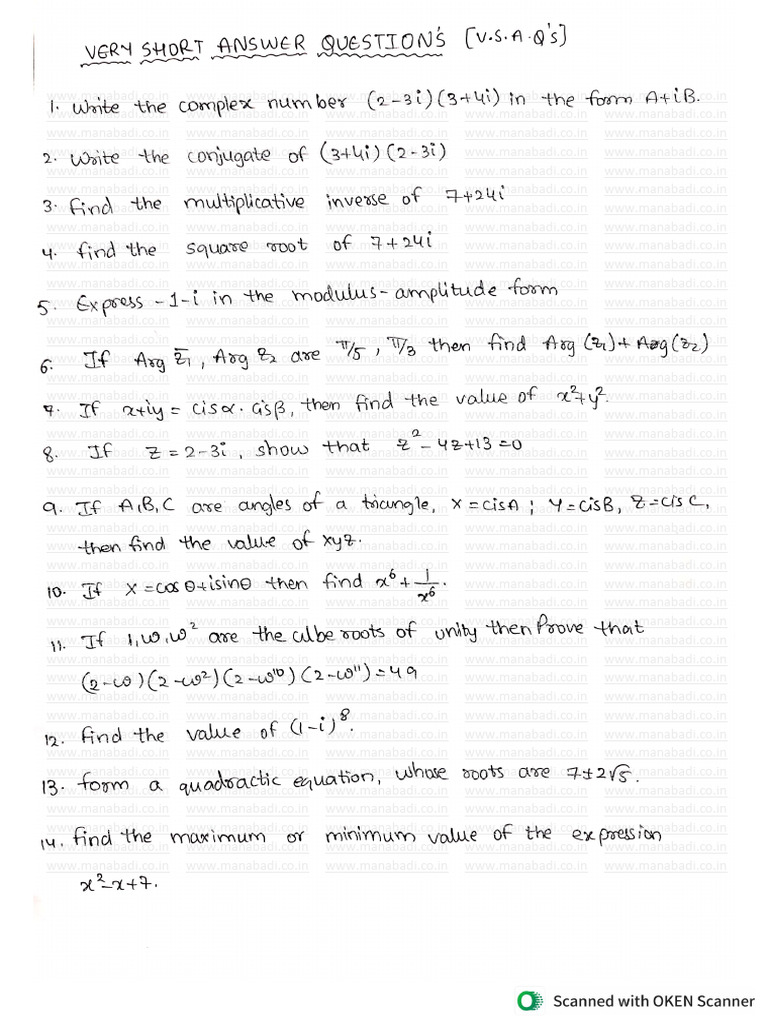 VERY SHORT ANSWER QUESTION'S [V.S.A.Q's]
1. Write the complex number (2-3i)(3+4i) in the form A+iB.
2. Write the conjugate of (3+4i)(2-3i)
3. Find the multiplicative inverse of 7+24i
4. find the square root of 7+24i
5. Express -1-i in the modulus-amplitude form
6. If Arg z̄₁, Arg z₂ are π/5, π/3 then find Arg(z₁)+Arg(z₂)
7. If x+iy = cisα.cisβ, then find the value of x²+y².
8. If z=2-3i, show that z²-4z+13=0
9. If A,B,C are angles of a triangle, x=cisA; y=cisB, z=cisC,
then find the value of xyz.
10. If x=cosθ+isinθ then find x⁶+1/x⁶.
11. If 1,ω,ω² are the cube roots of unity then Prove that
(2-ω)(2-ω²)(2-ω¹⁰)(2-ω¹¹)=49
12. find the value of (1-i)⁸.
13. form a quadractic equation, whose roots are 7±2√5.
14. find the maximum or minimum value of the expression
x²-x+7.
www.manabadi.co.in
Scanned with OKEN Scanner